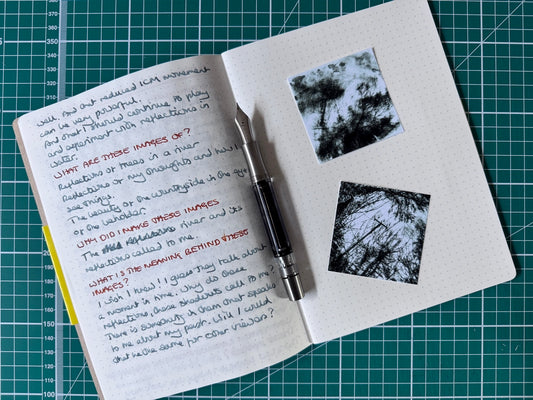 well. And that reduced ICM movement
can be very powerful.
And that I should continue to play
and experiment with reflections in
water.
WHAT ARE THESE IMAGES OF?
Reflections of trees in a river
Reflections of my thoughts and how I
see things
The beauty of the countryside in the eye
of the beholder.
WHY DID I MAKE THESE IMAGES
The river and its
reflections called to me.
WHAT IS THE MEANING BEHIND THESE
IMAGES?
I wish I knew! I guess they talk about
a moment in time. Why do these
reflections, these shadows call to me?
There is something in them that speaks
to me about my past. Will I could
that be the same for other viewers?
380
370
360
350
200
190
180
170
160
150
140
130
120
110
100